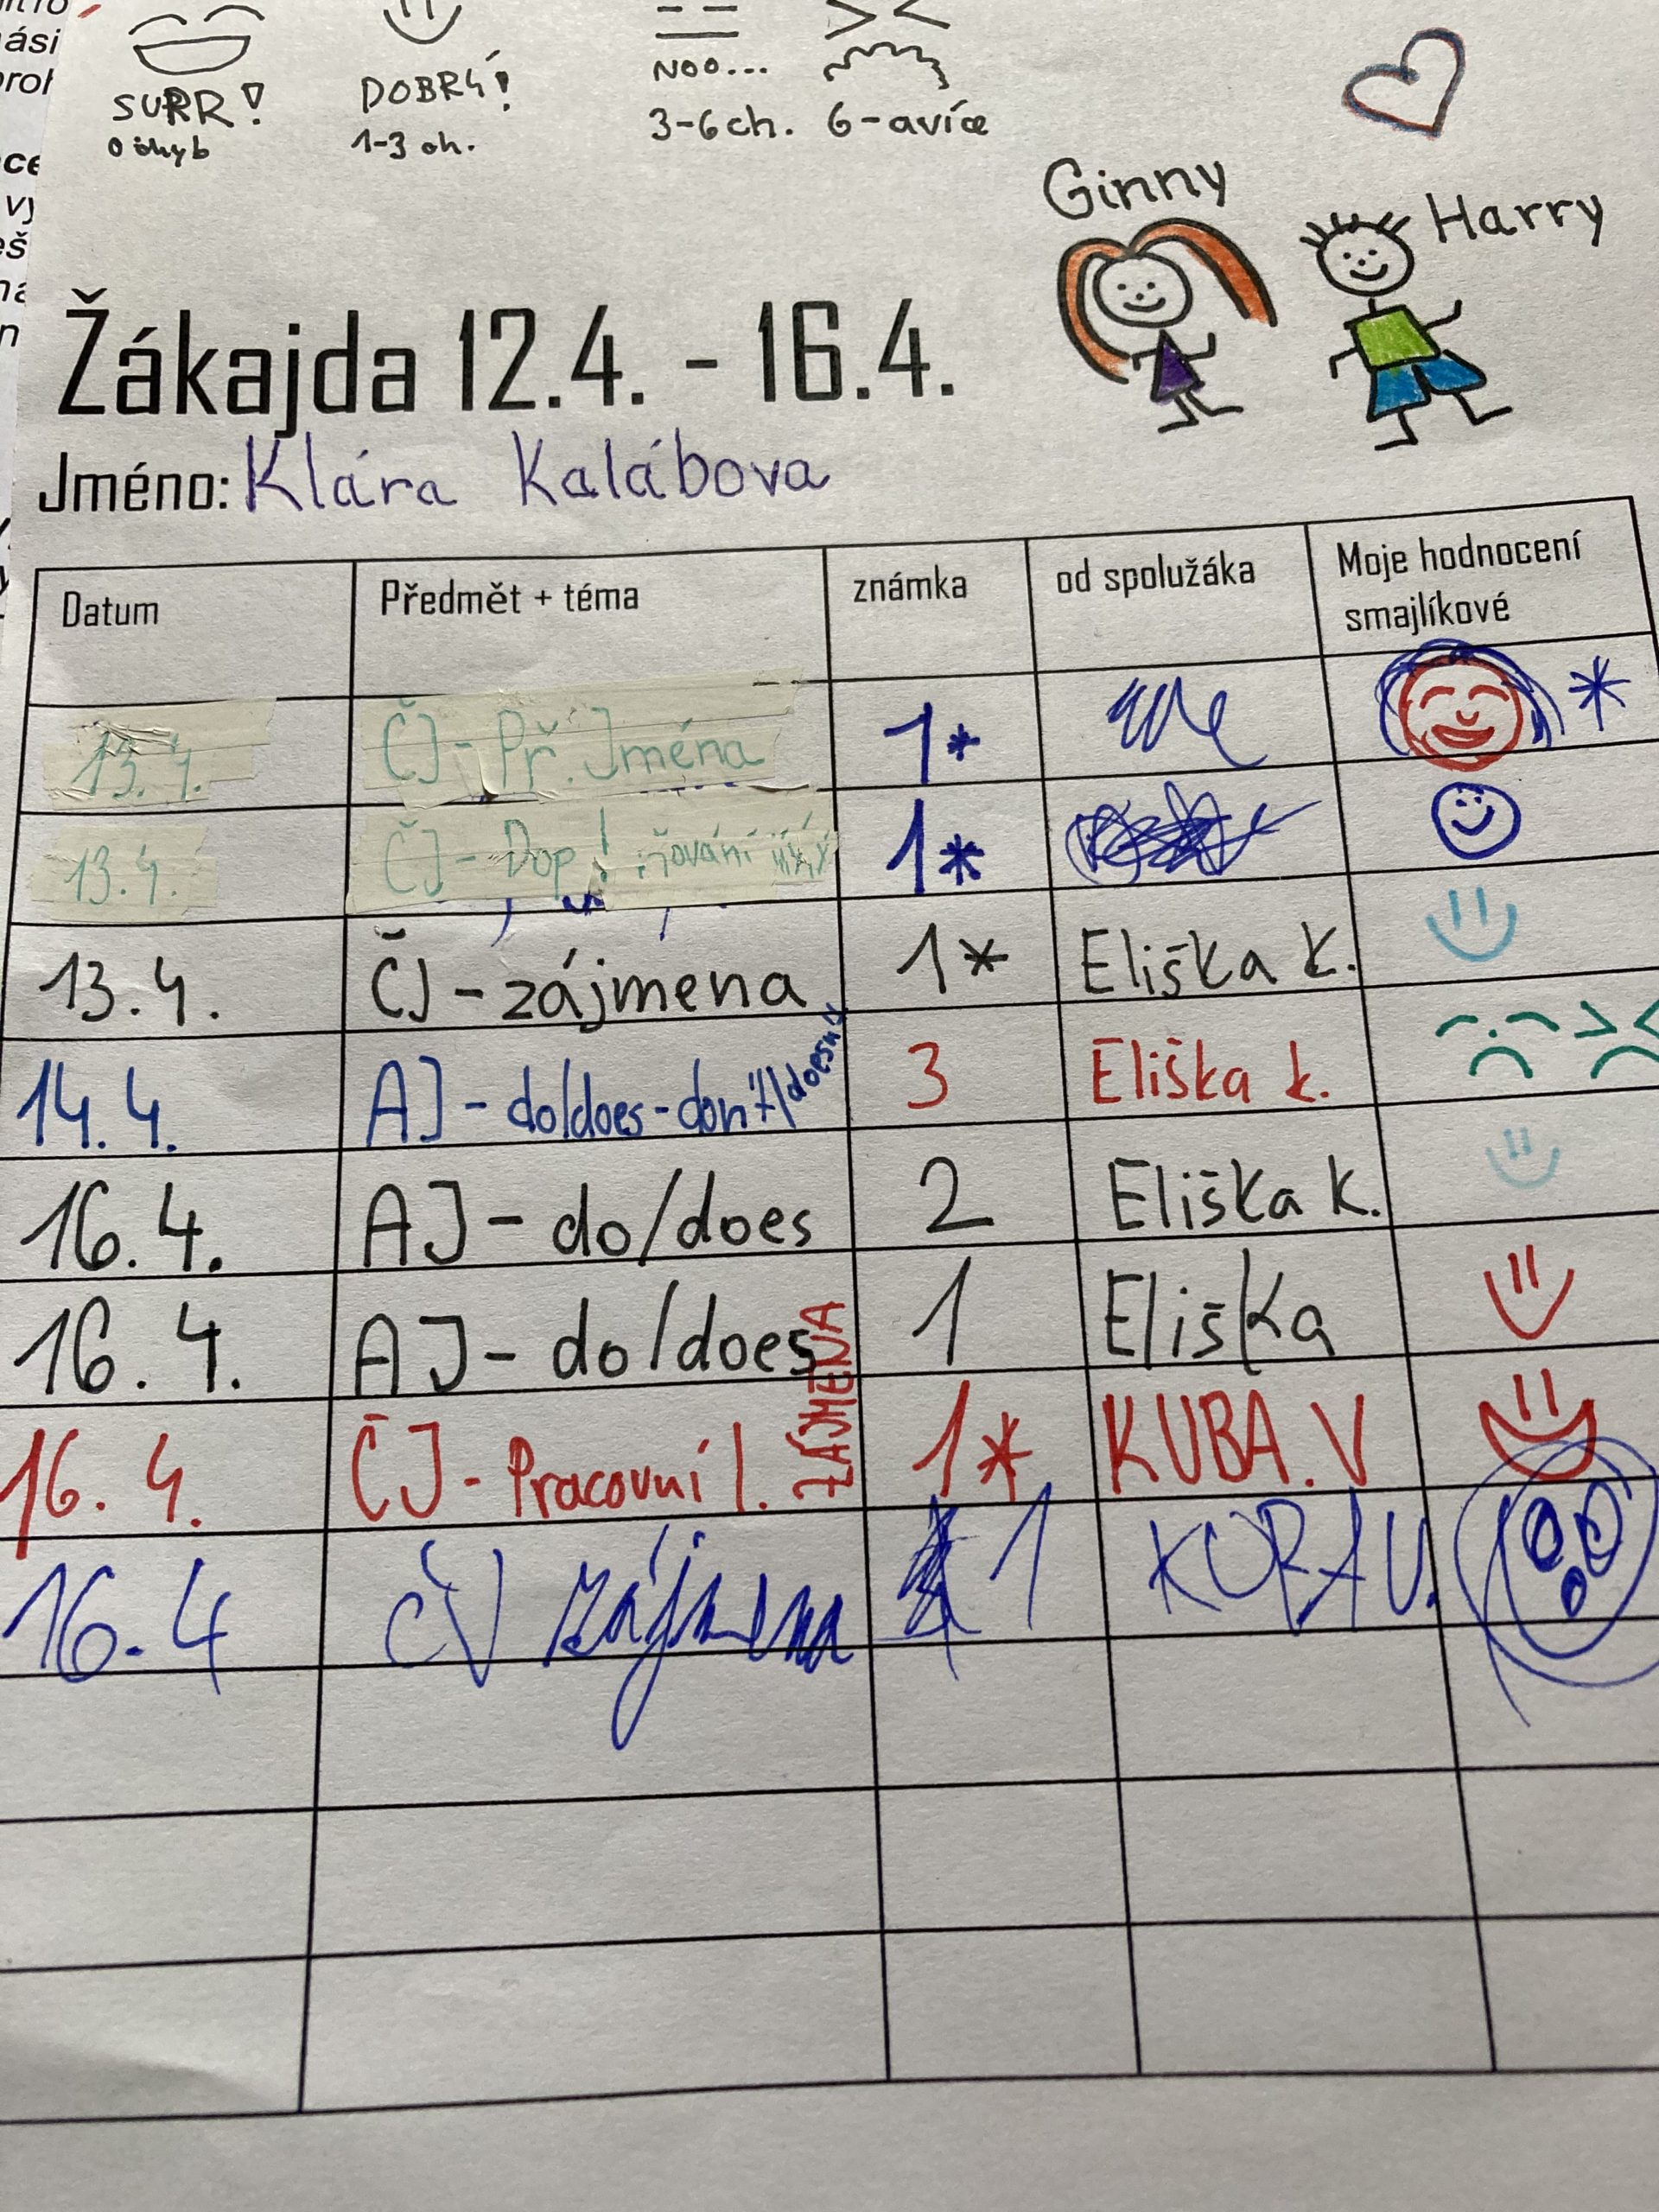 SUPR! DOBRÝ! NOO...
0 chyb 1-3 ch. 3-6 ch. 6-a více
Ginny
Harry
Žákajda 12.4. - 16.4.
Jméno: Klára Kalábova
Datum Předmět + téma známka od spolužáka Moje hodnocení
smajlíkové
13.4. ČJ - Př. Jména 1*
13.4. ČJ - 1*
13.4. ČJ - zájmena 1* Eliška K.
14.4. AJ - do/does - don't/doesn't 3 Eliška K.
16.4. AJ - do/does 2 Eliška K.
16.4. AJ - do/does 1 Eliška
16.4. ČJ - Pracovní l. ZÁJMENA 1* KUBA.V
16.4 zájmena 1 KUBA V.